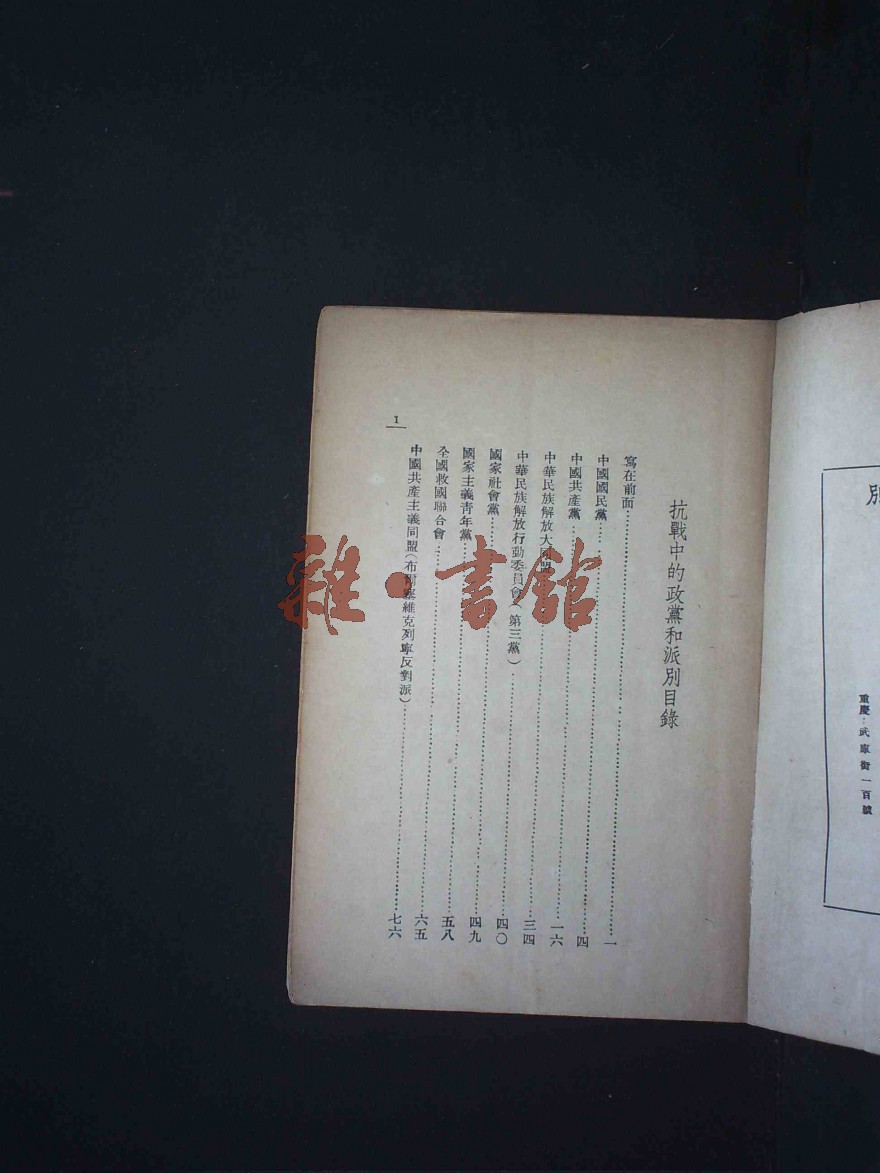 別
重慶·武庫街一百號
抗戰中的政黨和派別目錄
寫在前面 一
中國國民黨 四
中國共產黨 一六
中華民族解放大同盟 三四
中華民族解放行動委員會(第三黨) 四〇
國家社會黨 四九
國家主義青年黨 五八
全國救國聯合會 六五
中國共產主義同盟(布爾塞維克列寧反對派) 七六
1
雜·書館